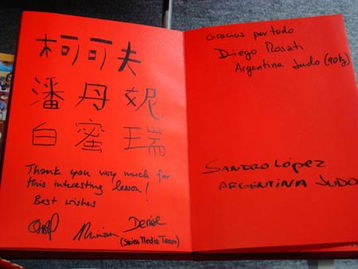 柯可夫
潘丹妮
白蜜瑞
Thank you very much for
this interesting lesson!
Best wishes
Miriam Denise
(Swiss Media Team)
Gracias por todo
Diego Rosati
Argentina Judo
SANDRO LÓPEZ
ARGENTINA JUDO